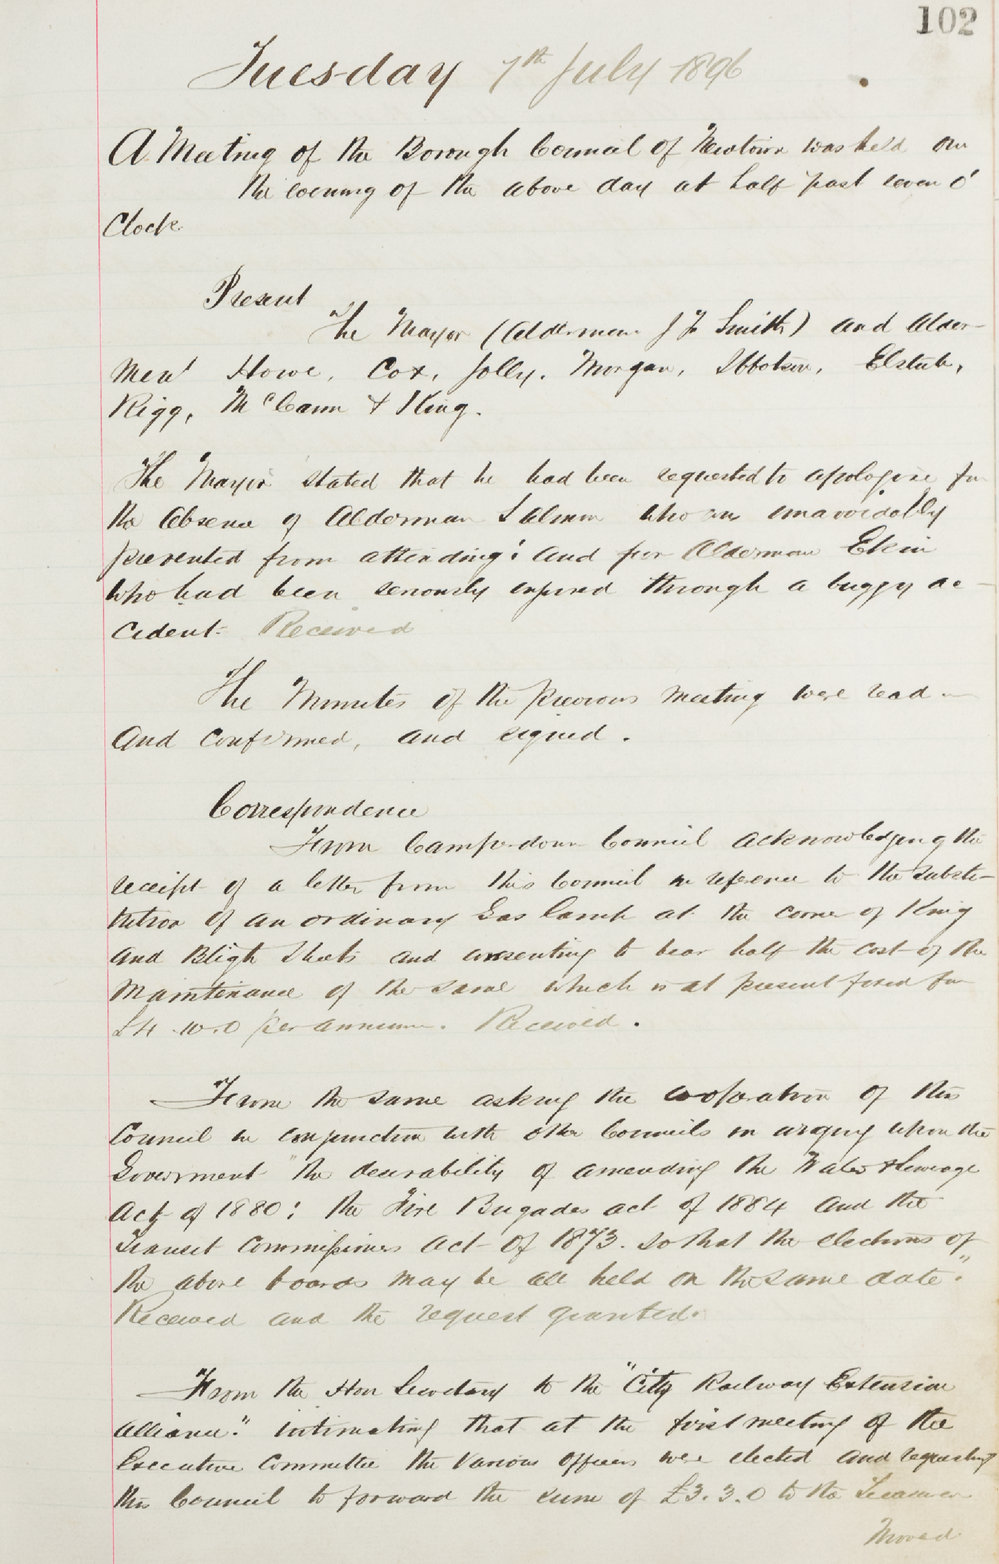 102
Tuesday 7th July 1896
A Meeting of the Borough Council of Newtown was held on
the evening of the above day at half past seven o'
Clock
Present
The Mayor (Alderman J F Smith) and Alder-
men Howe, Cox, Jolly, Morgan, Ibbotson, Elstub,
Rigg, McCann & King.
The Mayor stated that he had been requested to apologise for
the absence of Alderman Salmon who was unavoidably
prevented from attending: and for Alderman Elkin
who had been seriously injured through a buggy ac-
cident. Received
The Minutes of the previous meeting were read
and confirmed, and signed.
Correspondence
From Camperdown Council acknowledging the
receipt of a letter from this Council in reference to the substi-
tution of an ordinary Gas Lamp at the corner of King
and Bligh Streets and consenting to bear half the cost of the
Maintenance of the same which is at present fixed for
£4.10.0 per annum. Received.
From the same asking the cooperation of this
Council in conjunction with other Councils in urging upon the
Government "the desirability of amending the Water & Sewerage
Act of 1880: the Fire Brigades act of 1884 and the
Transit Commissioners Act of 1873. so that the elections of
the above boards may be all held on the same date."
Received and the request granted.
From the Hon Secretary to the "City Railway Extension
Alliance." intimating that at the first meeting of the
Executive Committee the various officers were elected and requesting
this Council to forward the sum of £3.3.0 to the Treasurer
Moved